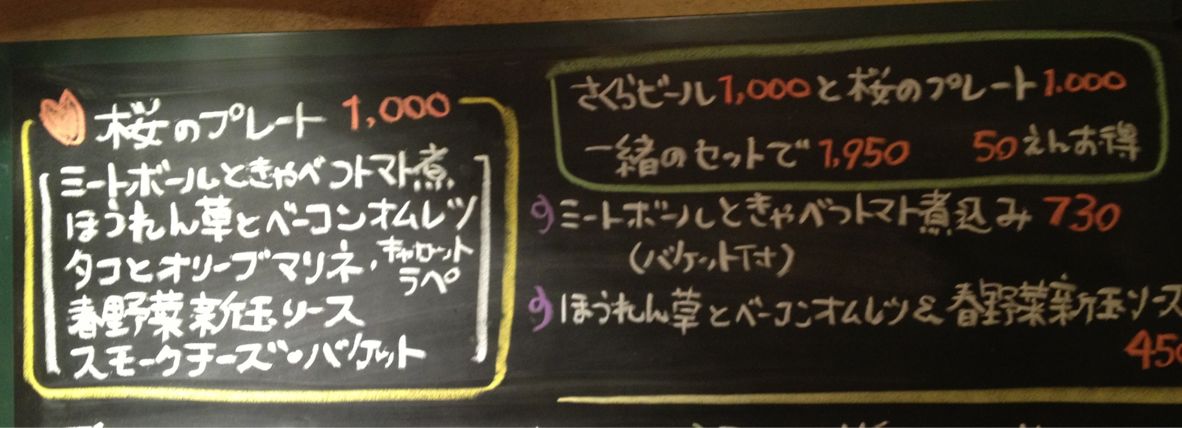 桜のプレート 1,000
ミートボールときゃべつトマト煮
ほうれん草とベーコンオムレツ
タコとオリーブマリネ・キャロットラペ
春野菜新玉ソース
スモークチーズ・バケット
さくらビール1,000と桜のプレート1.000
一緒のセットで 1,950 50えんお得
ミートボールときゃべつトマト煮込み 730
(バケット付)
ほうれん草とベーコンオムレツ&春野菜新玉ソース
450